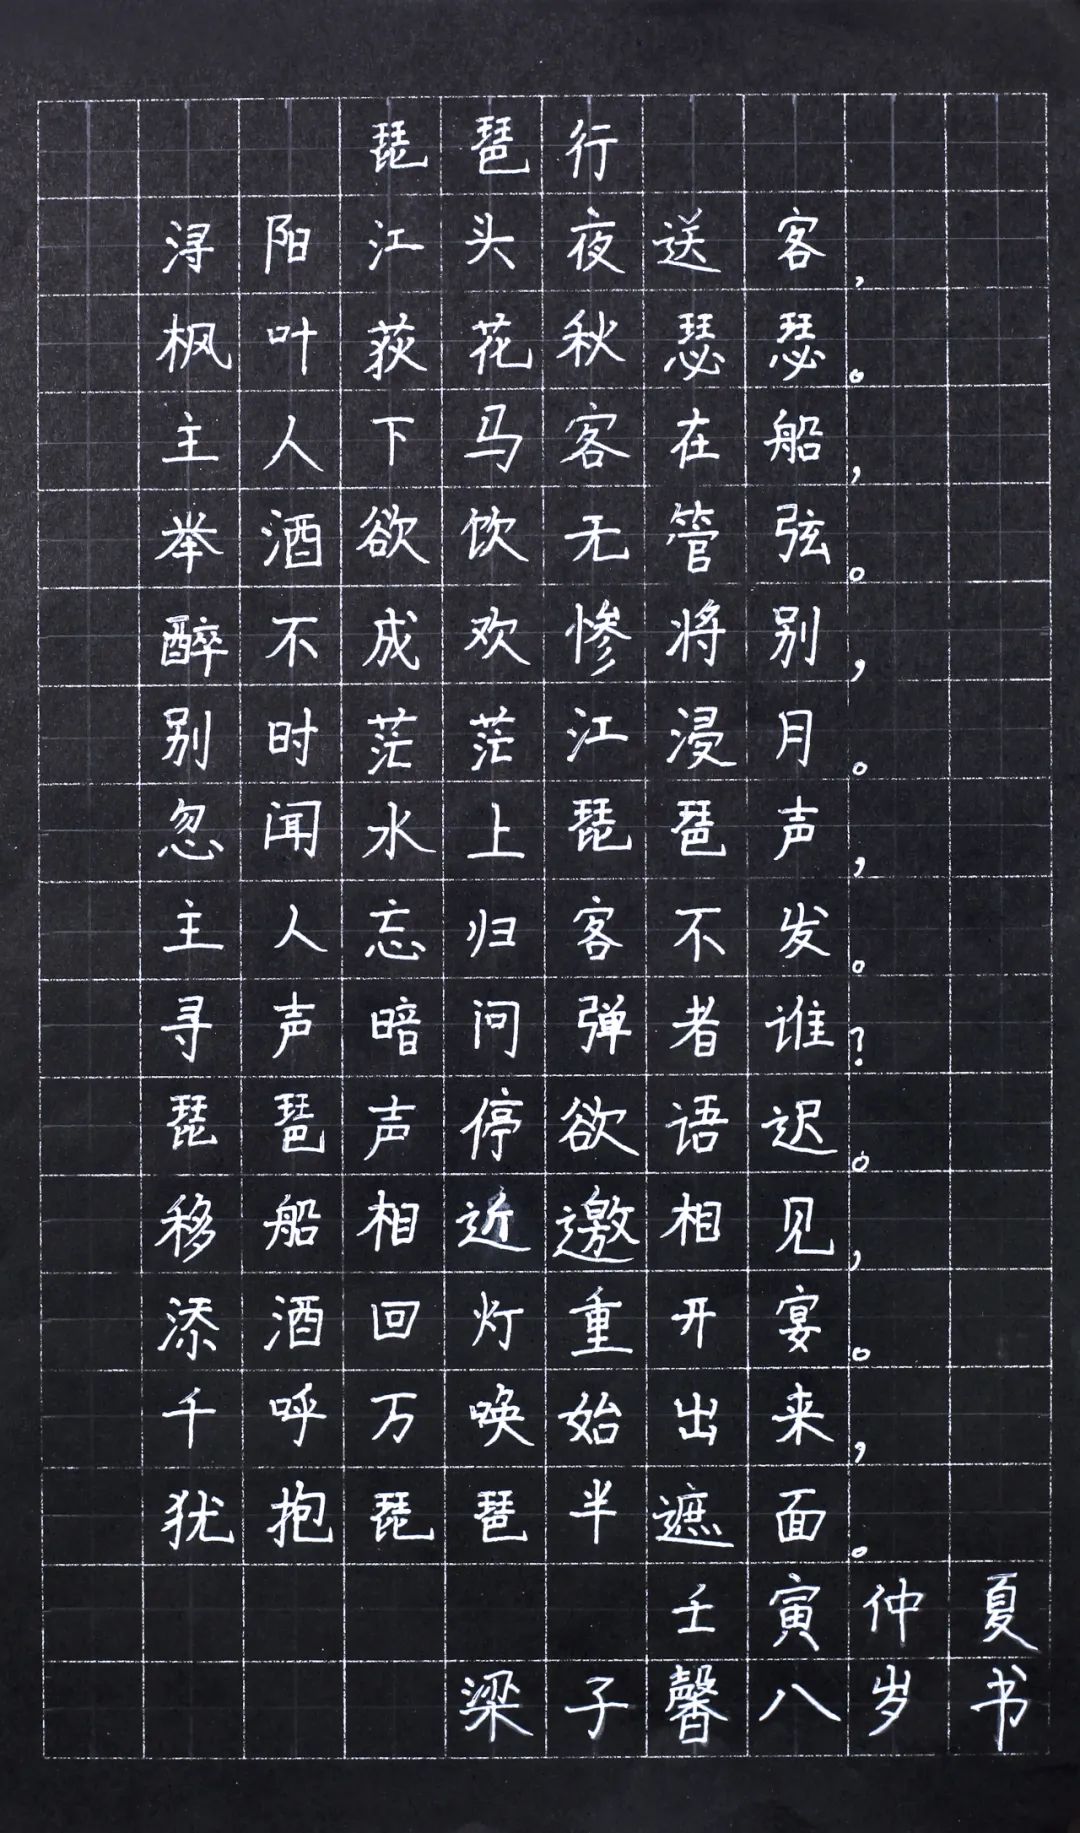 琵琶行
浔阳江头夜送客，
枫叶荻花秋瑟瑟。
主人下马客在船，
举酒欲饮无管弦。
醉不成欢惨将别，
别时茫茫江浸月。
忽闻水上琵琶声，
主人忘归客不发。
寻声暗问弹者谁？
琵琶声停欲语迟。
移船相近邀相见，
添酒回灯重开宴。
千呼万唤始出来，
犹抱琵琶半遮面。
壬寅仲夏
梁子馨八岁书